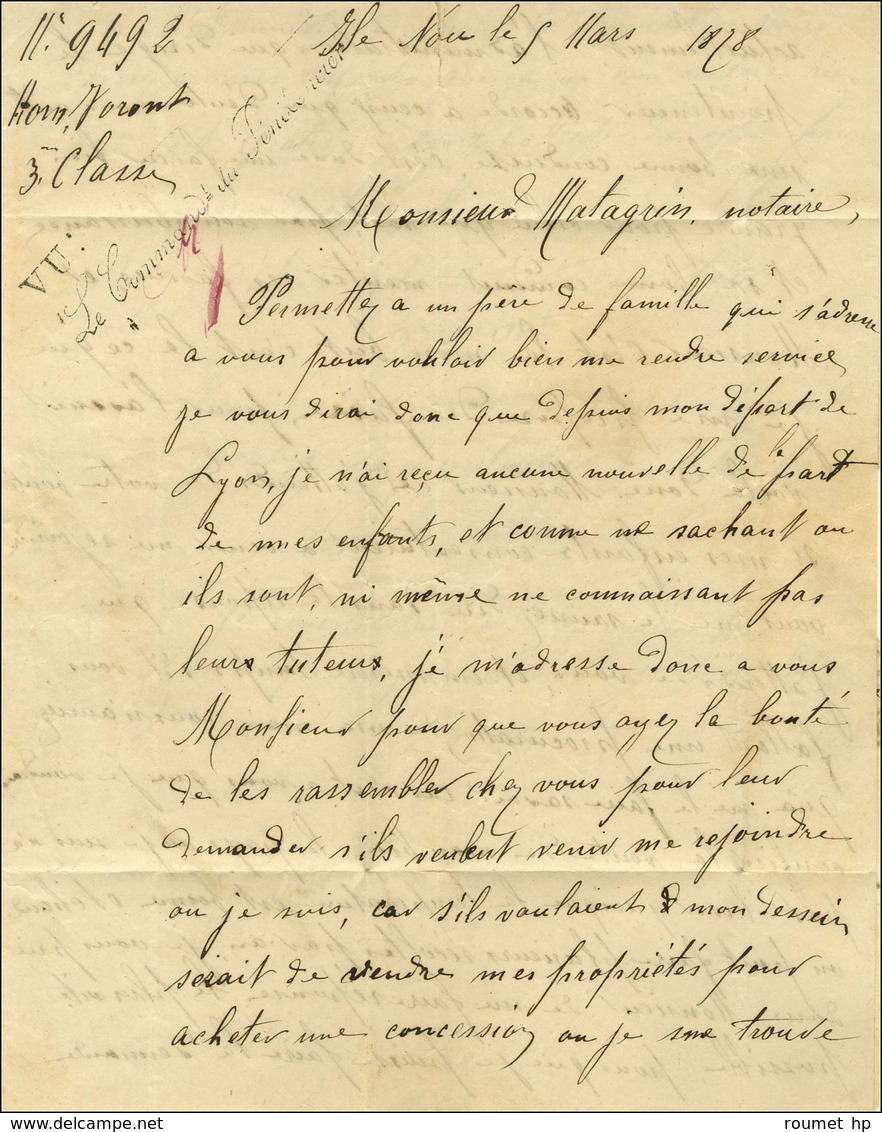 N° 9492
Ile Nou le 5 Mars 1878
3me Classe
VU:
Le Command.t du Pénitencier
Monsieur Matagrin, notaire,
Permettez a un père de famille qui s'adresse
a vous pour vouloir bien me rendre service
je vous dirai donc que depuis mon départ de
Lyon, je n'ai reçu aucune nouvelle de la part
de mes enfants, et comme ne sachant ou
ils sont, ni même ne connaissant pas
leurs tuteurs, je m'adresse donc a vous
Monsieur pour que vous ayez la bonté
de les rassembler chez vous pour leur
demander s'ils veulent venir me rejoindre
ou je suis, car s'ils voulaient mon dessein
serait de vendre mes propriétés pour
acheter une concession ou je me trouve
roumet hp